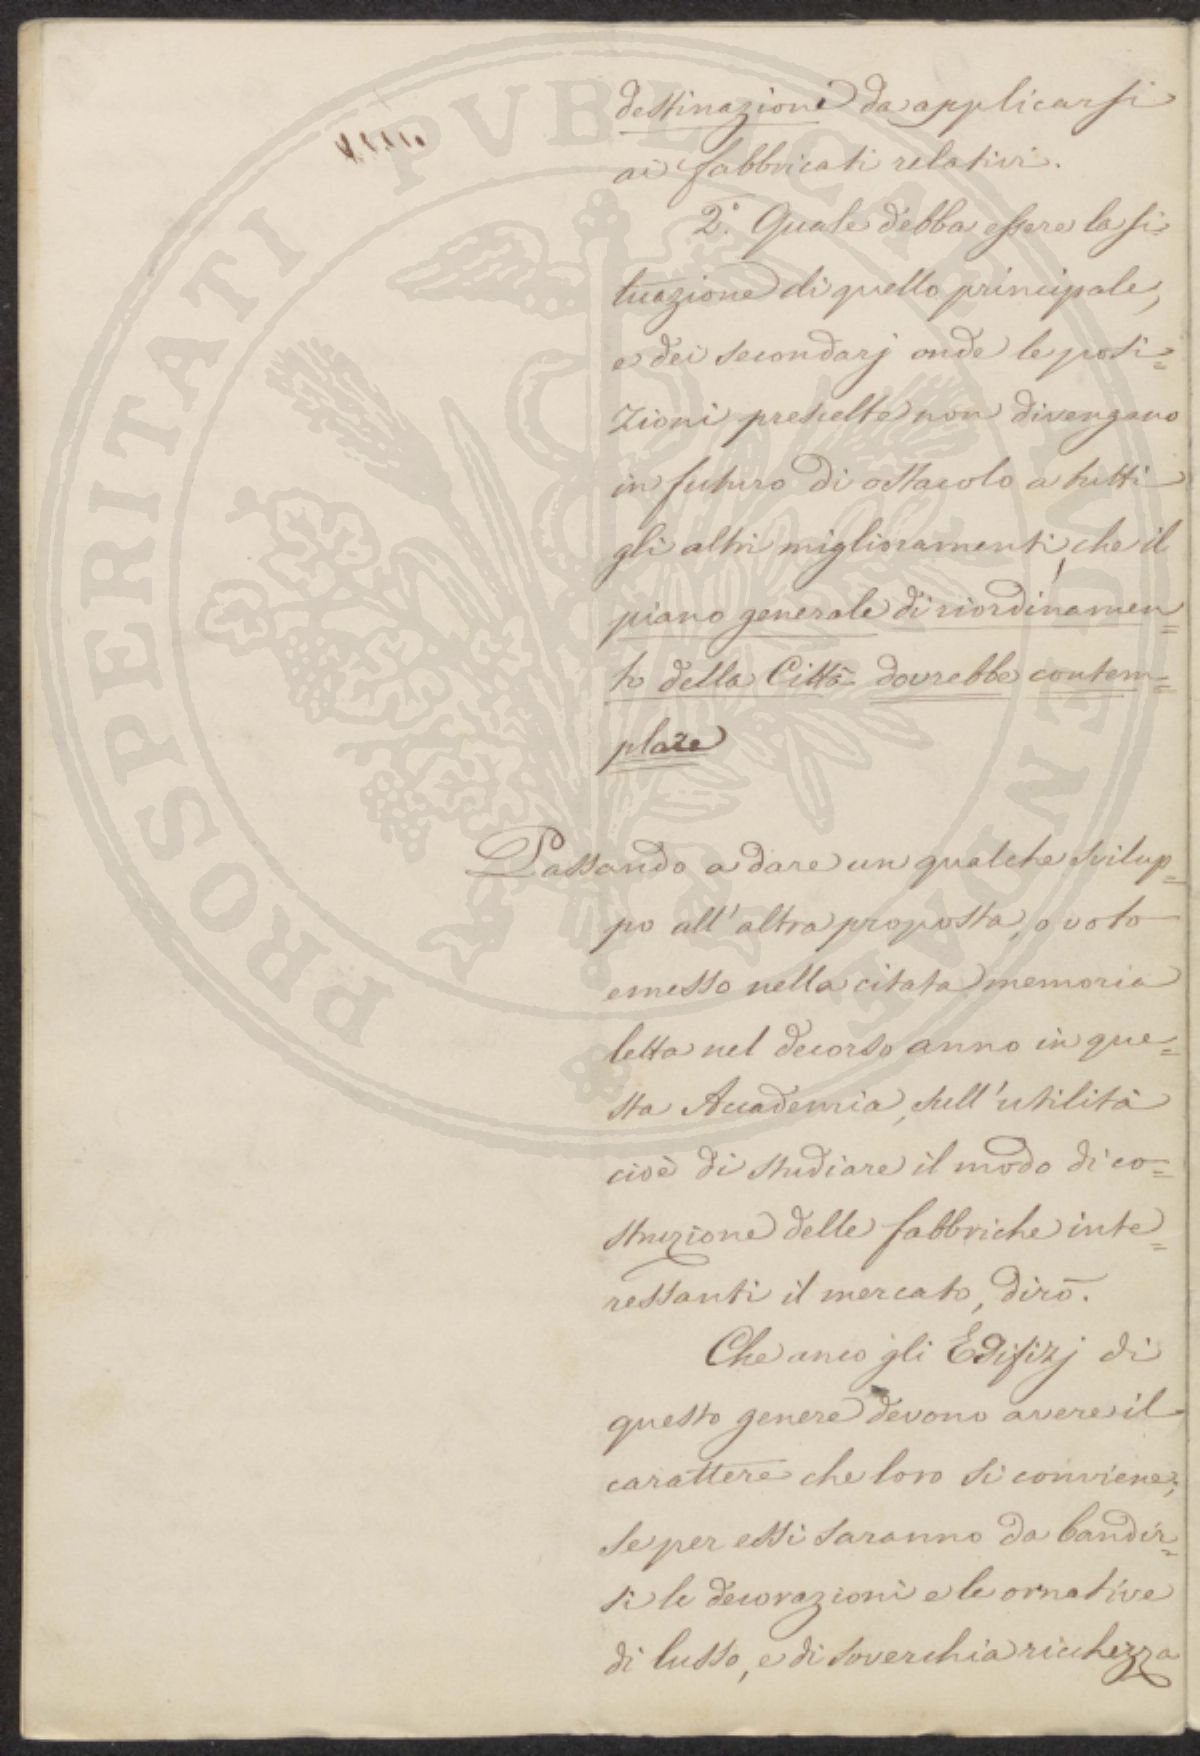 destinazioni da applicarsi
ai fabbricati relativi.
2.° Quale debba essere la si=
tuazione di quello principale,
e dei secondarj onde le posi=
zioni prescelte non divengano
in futuro di ostacolo a tutti
gli altri miglioramenti, che il
piano generale di riordinamen=
to della Città dovrebbe contem=
plare
Passando a dare un qualche svilup=
po all'altra proposta, o voto
emesso nella citata memoria
letta nel decorso anno in que=
sta Accademia, sull'utilità
cioè di studiare il modo di co=
struzione delle fabbriche inte=
ressanti il mercato, dirò.
Che anco gli Edifizj di
questo genere devono avere il
carattere che loro si conviene;
se per essi saranno da bandir=
si le decorazioni e le ornative
di lusso, e di soverchia ricchezza
PROSPERITATI PVBLICAE AVGENDAE